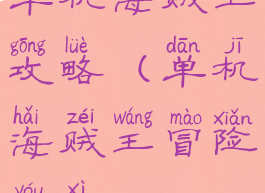 单机海贼王
gōng lüè dān jī
攻略(单机
hǎi zéi wáng mào xiǎn
海贼王冒险
yóu xì